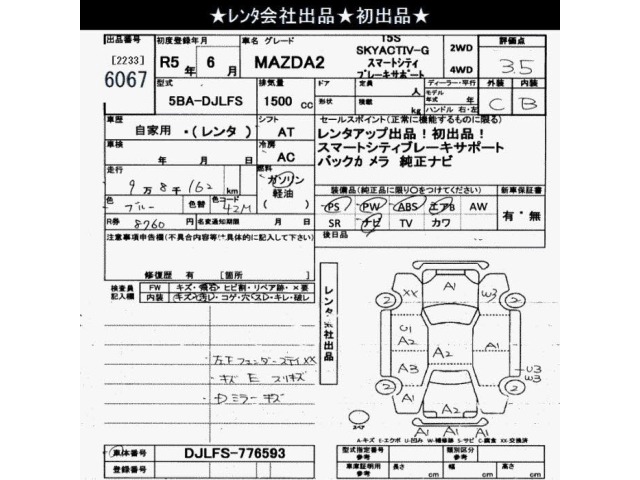 ★レンタ会社出品★初出品★
出品番号 初度登録年月 車名 グレード 15S 評価点
[2233] R5年 6月 MAZDA2 SKYACTIV-G 2WD 3.5
6067 スマートシティ 4WD
ブレーキサポート
型式 排気量 ドア 定員 人 ディーラー・平行 外装 内装
5BA-DJLFS 1500cc 形状 積載 kg モデル年式 年 C B
ハンドル 右・左
車歴 シフト セールスポイント(正常に機能するものに限る)
自家用・(レンタ) AT レンタアップ出品!初出品!
車検 冷房 スマートシティブレーキサポート
年 月 日 AC バックカメラ 純正ナビ
走行 燃料
9万8千162km ガソリン
軽油
( )
装備品(純正品に限り○をつけてください) 新車保証書
色 ブルー 色替 色コード 42M
PS PW ABS エアB AW 有・無
R券 8760 名変通知期限 月 日 SR ナビ TV カワ
注意事項申告欄(不具合内容等は具体的に記入して下さい) 後日品
修復歴 有 [箇所 ]
検査員記入欄 FW キズ・飛石・ヒビ割・リペア跡・×要
内装 キズ・汚レ・コゲ・穴・ビス穴・キレ・破レ
レンタ会社出品
左Fフェンダーステイ XX
キズ E スリキズ
Dミラーキズ
A1
2 XX W3 2
A1
U1
A2 A1
A2
A3 A1
U3
W3
2 2
A2
A1
スペア
A-キズ E-エクボ U-凹み W-補修跡 S-サビ C-腐食 XX-交換済
車体番号 DJLFS-776593 型式指定番号 参考 類別区分 参考
登録番号 車庫証明用 参考 長さ cm 幅 cm 高さ cm